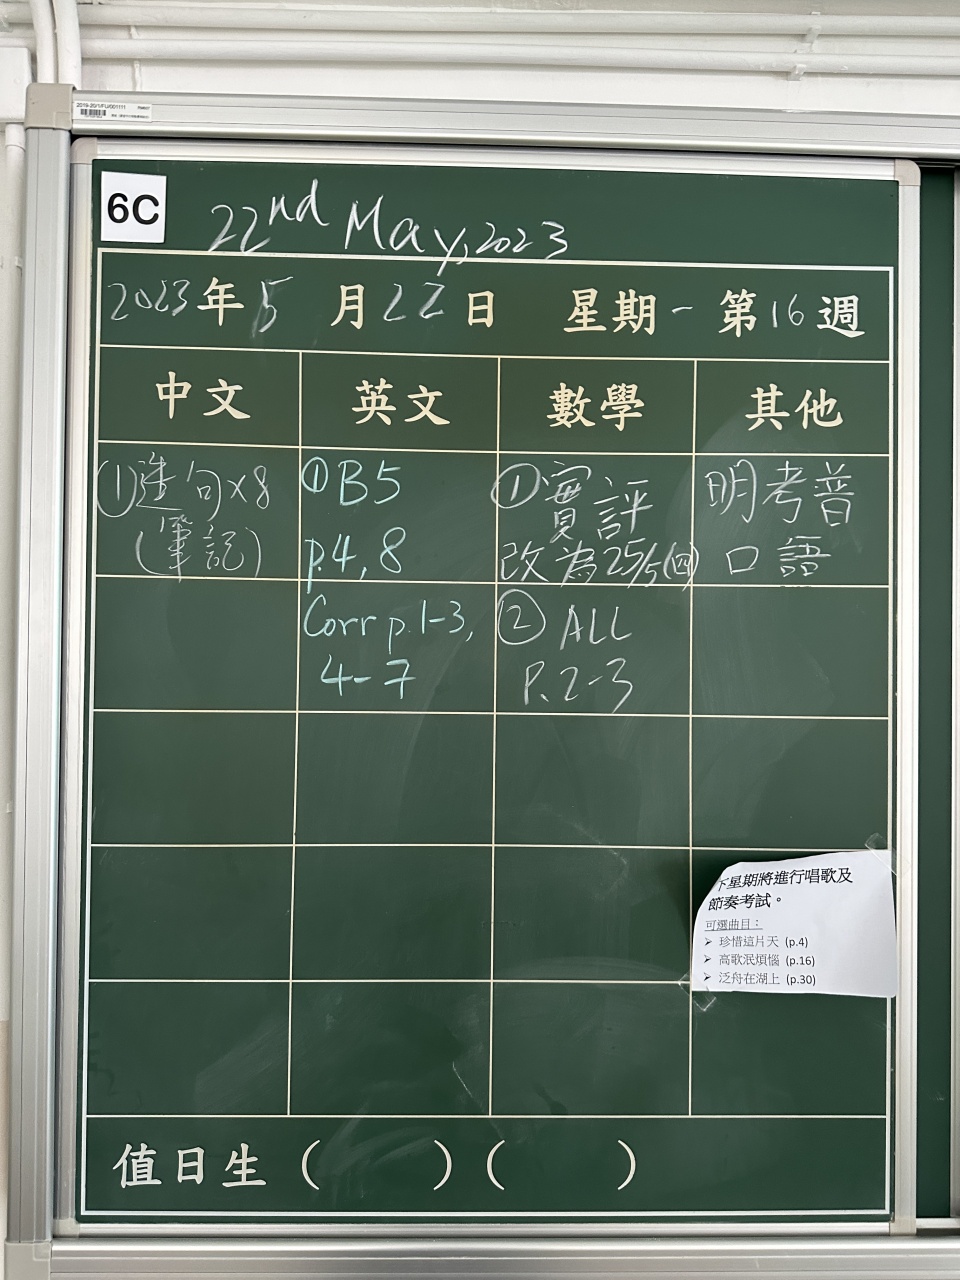 2019-20/1/FU/001111
6C
22nd May, 2023
2023年5月22日 星期一 第16週
中文 英文 數學 其他
①造句x8
(筆記)
①B5
p.4, 8
Corr p.1-3,
4-7
①實評
改為25/5(四)
②ALL
P.2-3
明考普
口語
下星期將進行唱歌及
節奏考試。
可選曲目：
➢ 珍惜這片天 (p.4)
➢ 高歌泯煩惱 (p.16)
➢ 泛舟在湖上 (p.30)
值日生 ( ) ( )